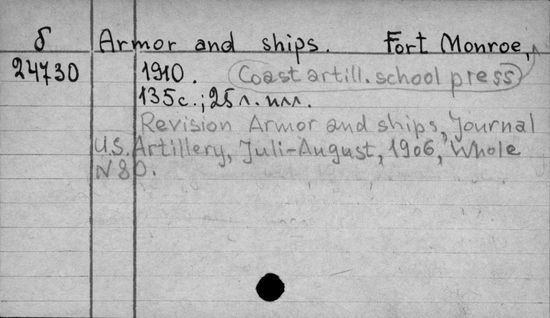 б Armor and ships. Fort Monroe,
24730 1910. Coast artill. school press
135с.; 25 л. илл.
Revision Armor and ships, Journal
U.S. Artillery, Juli-August, 1906, Whole
N 80.